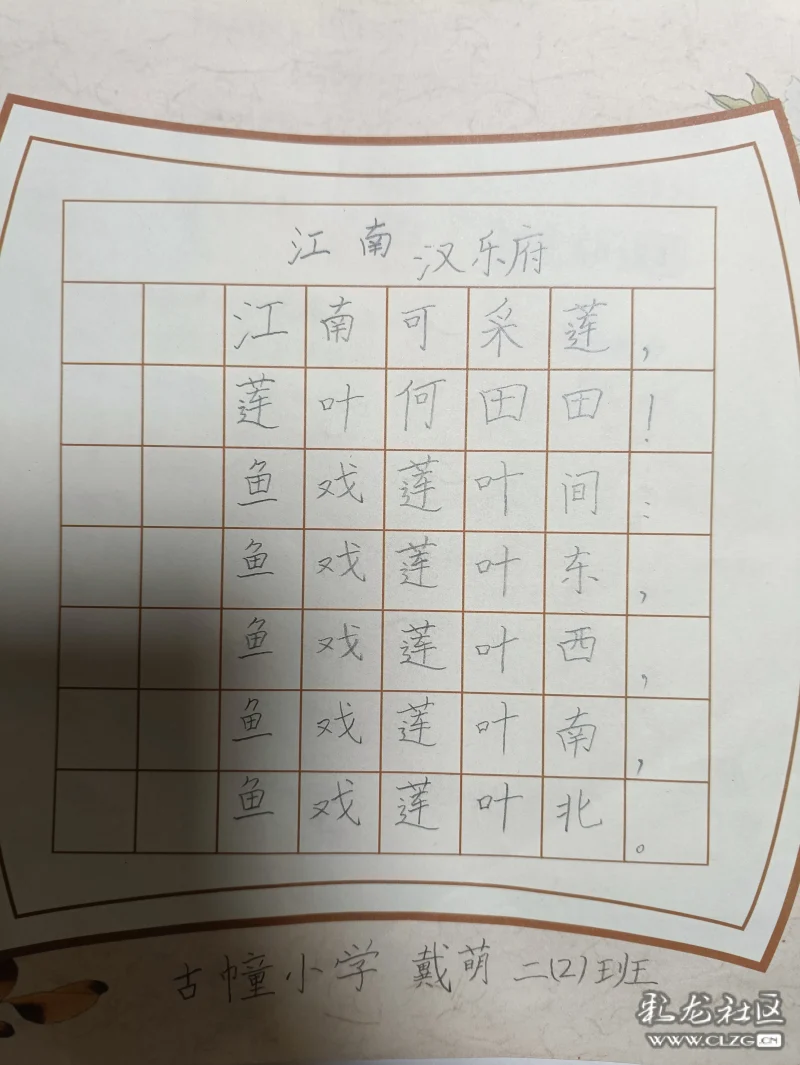 江南 汉乐府
江南可采莲,
莲叶何田田!
鱼戏莲叶间:
鱼戏莲叶东,
鱼戏莲叶西,
鱼戏莲叶南,
鱼戏莲叶北。
古幢小学 戴萌 二(2)班
乳龙社区
WWW.CLZG.CN